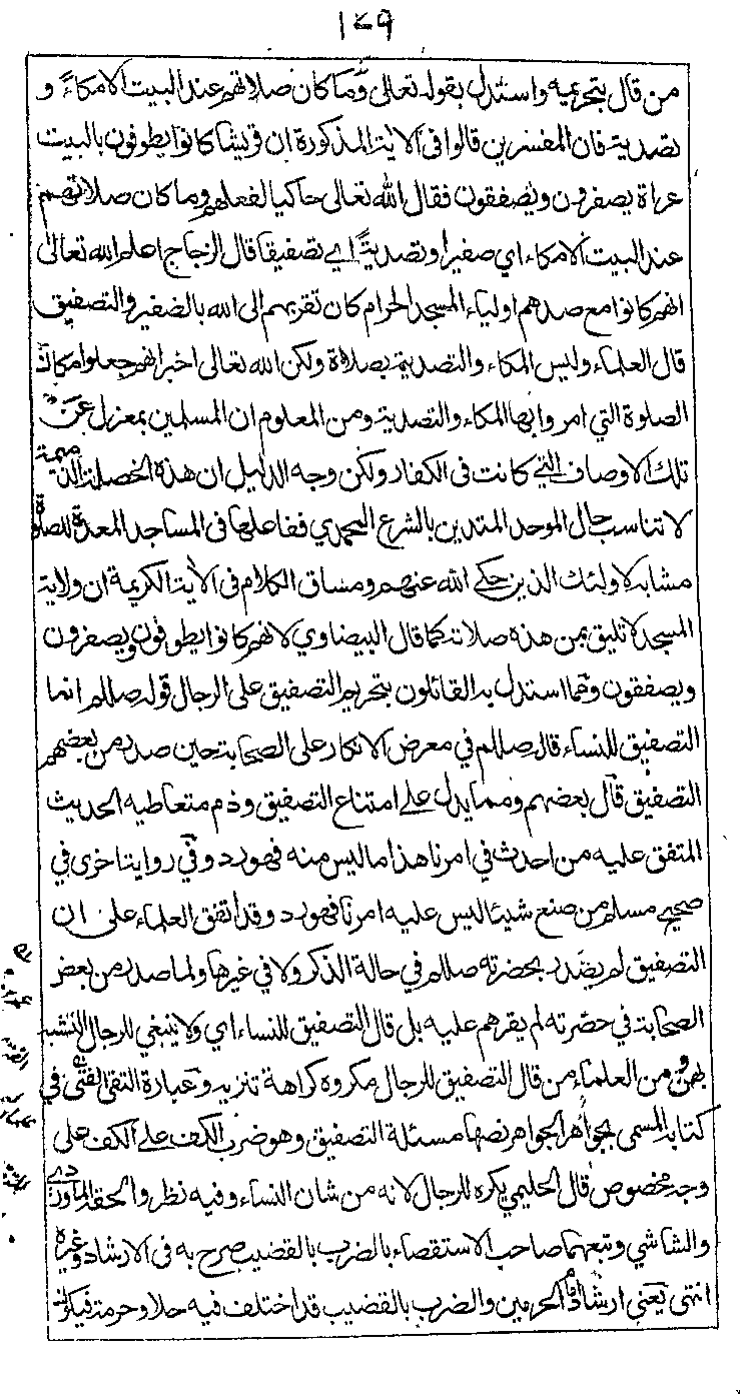 ١٧٩
من قال بتحريمه واستدل بقوله تعالى وما كان صلاتهم عند البيت الا مكاءً و
تصدية فان المفسرين قالوا فى الاية المذكورة ان قريشا كانوا يطوفون بالبيت
عراة يصفرون ويصفقون فقال الله تعالى حاكيا لفعلهم وما كان صلاتهم
عند البيت الا مكاء اي صفيرا وتصديةً اي تصفيقا قال الزجاج اعلم الله تعالى
انهم كانوا مع صدهم اولياء المسجد الحرام كان تقربهم الى الله بالصفير والتصفيق
قال العلماء وليس المكاء والتصدية بصلاة ولكن الله تعالى اخبر انهم جعلوا مكان
الصلوة التي امروا بها المكاء والتصدية ومن المعلوم ان المسلمين بمعزل عن
تلك الاوصاف التي كانت فى الكفار ولكن وجه الدليل ان هذه الخصلة الذميمة
لا تناسب حال الموحد المتدين بالشرع المحمدي ففاعلها فى المساجد المعدة للصلوة
مشابه لاولئك الذين حكى الله عنهم ومساق الكلام فى الاية الكريمة ان ولاية
المسجد لا تليق بمن هذه صلاته كما قال البيضاوي لانهم كانوا يطوفون ويصفرون
ويصفقون ومما استدل به القائلون بتحريم التصفيق على الرجال قوله صللم انما
التصفيق للنساء قال صللم في معرض الانكار على الصحابة حين صدر من بعضهم
التصفيق قال بعضهم ومما يدل على امتناع التصفيق وذم متعاطيه الحديث
المتفق عليه من احدث في امرنا هذا ما ليس منه فهو رد وفي رواية اخرى في
صحيح مسلم من صنع شيئا ليس عليه امرنا فهو رد وقد اتفق العلماء على ان
التصفيق لم يصدر بحضرته صللم في حالة الذكر ولا في غيرها ولما صدر من بعض
الصحابة في حضرته لم يقرهم عليه بل قال التصفيق للنساء اي ولا ينبغي للرجال التشبه
بهن ومن العلماء من قال التصفيق للرجال مكروه كراهة تنزيه وعبارة التقى الفتى في
كتابه المسمى بجواهر الجواهر نصها مسئلة التصفيق وهو ضرب الكف على الكف على
وجه مخصوص قال الحليمي يكره للرجال لانه من شان النساء وفيه نظر والحقه الماوردي
والشاشي وتبعهما صاحب الاستقصاء بالضرب بالقضيب صرح به فى الارشاد وغيره
انتهى يعني ارشاد امام الحرمين والضرب بالقضيب قد اختلف فيه حلا وحرمة فيكون